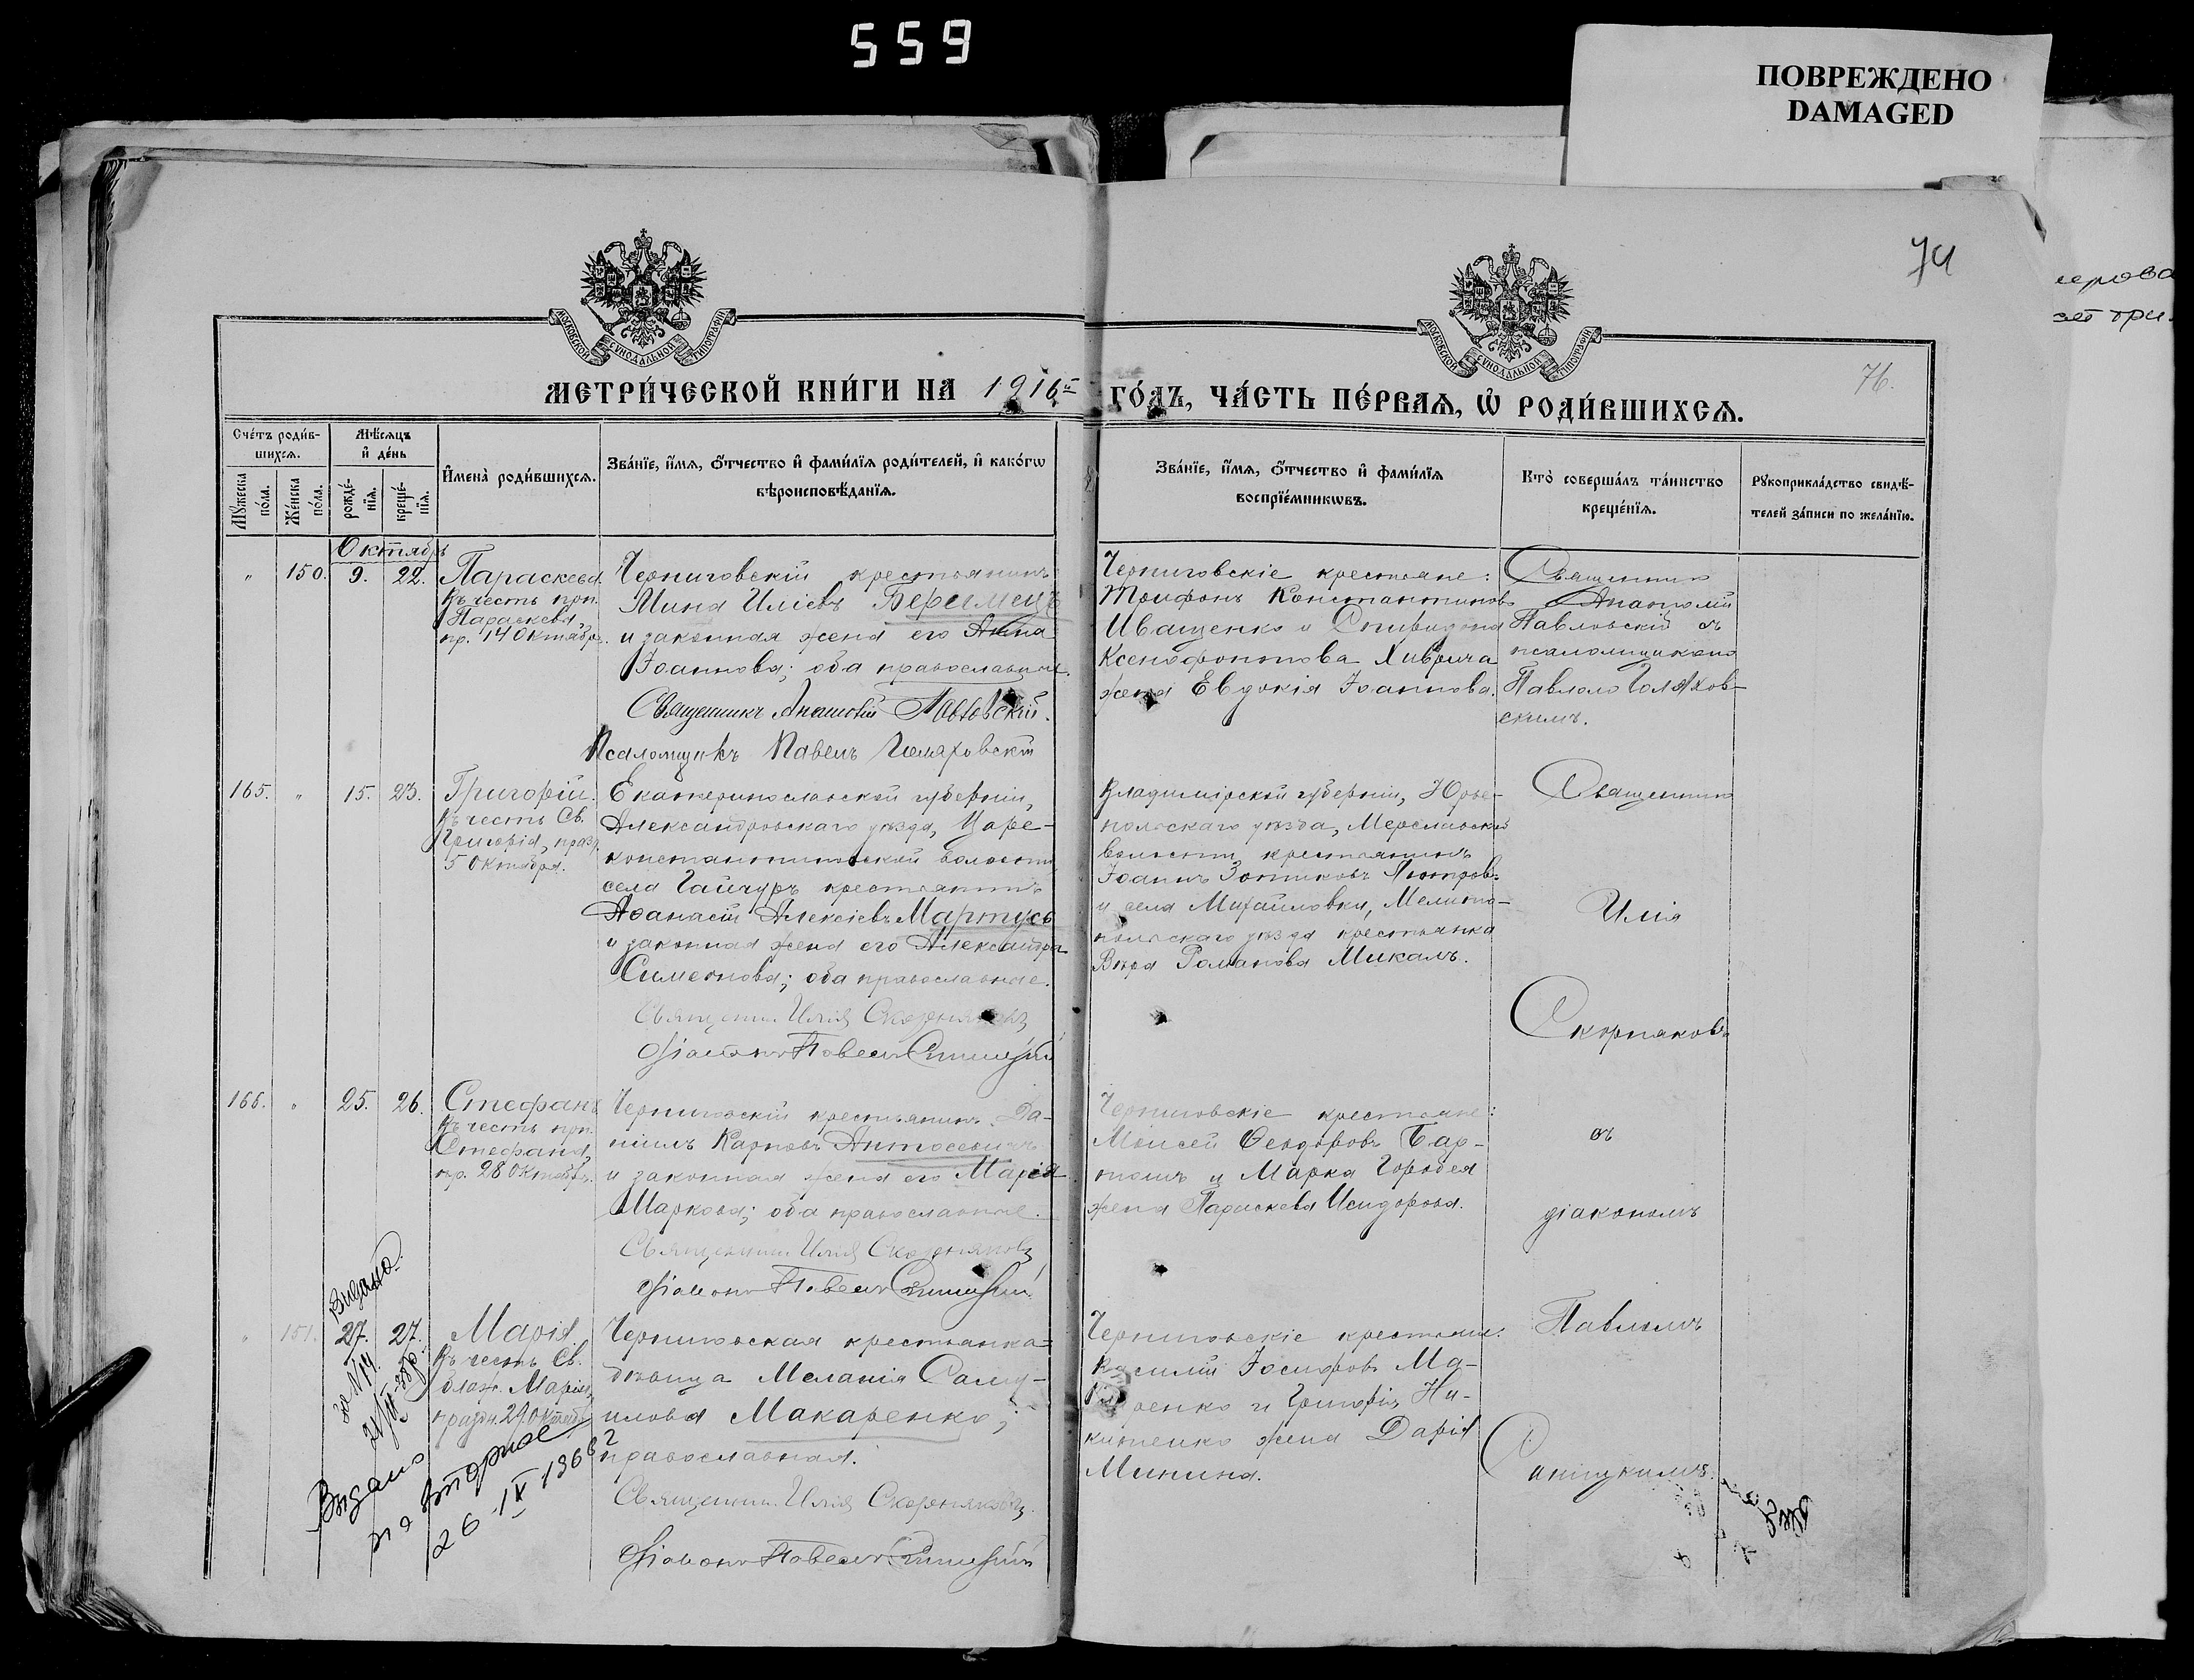 559
ПОВРЕЖДЕНО
DAMAGED
74
76.
МОСКОВСКОЙ СУНОДАЛЬНОЙ ТИПОГРАФИИ
МОСКОВСКОЙ СУНОДАЛЬНОЙ ТИПОГРАФИИ
МЕТРИ́ЧЕСКОЙ КНИ́ГИ НА 1916й ГО́ДЪ, ЧА́СТЬ ПЕ́РВАѦ, Ѡ҆ РОДИ́ВШИХСѦ.
Сче́тъ роди́в-
шихсѧ.
Мѣ́сѧцъ
и҆ де́нь
Мꙋ́жеска
по́ла.
Же́нска
по́ла.
рожде́-
нїѧ.
креще́-
нїѧ.
И҆мена̀ роди́вшихсѧ.
Зва́нїе, и҆́мѧ, ѻ҆́тчество и҆ фами́лїѧ роди́телей, и҆ како́гѡ
вѣроисповѣ́данїѧ.
Зва́нїе, и҆́мѧ, ѻ҆́тчество и҆ фами́лїѧ
воспрїе́мникѡвъ.
Кто̀ соверша́лъ та́инство
креще́нїѧ.
Рꙋкоприкла́дство свидѣ́-
телей за́писи по жела́нїю.
Октябрь
" 150. 9. 22. Параскева.
Въ честь прп.
Параскевы,
пр. 14 Октября.
Черниговскій крестьянинъ
Мина Иліевъ Беримецъ
и законная жена его Анна
Іоаннова; оба православные.
Священникъ Анатолій Павловскій.
Псаломщикъ Павелъ Голяховскій
Черниговскіе крестьяне:
Трифонъ Константиновъ
Иващенко и Спиридона
Ксенофонтова Хиврича
жена Евдокія Іоаннова.
Священникъ
Анатолій
Павловскій съ
псаломщикомъ
Павломъ Голяхов-
скимъ.
165. " 15. 23. Григорій.
Въ честь Св.
Григорія, празд.
5 Октября.
Екатеринославской губерніи,
Александровскаго уѣзда, Царе-
константиновской волости
села Гайчуръ крестьянинъ
Аѳанасій Алексіевъ Мартусь
и законная жена его Александра
Симеонова; оба православные.
Священникъ Илія Скорняковъ
Діаконъ Павелъ
Владимірской губерніи, Юрье-
польскаго уѣзда,
волости крестьянинъ
Іоаннъ Зотиковъ
и села Михайловки, Мелито-
польскаго уѣзда крестьянка
Вѣра Романова Микалъ.
Священникъ
Илія
Скорняковъ
166. " 25. 26. Стефанъ
Въ честь прп.
Стефана,
пр. 28 Октября.
Черниговскій крестьянинъ Да-
ніилъ Карповъ Антосевичъ
и законная жена его Марія
Маркова; оба православные.
Священникъ Илія Скорняковъ
Діаконъ Павелъ
Черниговскіе крестьяне:
Моисей Ѳеодоровъ Бар-
и Марка Горобея
жена Параскева Исидорова.
съ
діакономъ
" 151. 27. 27. Марія
Въ честь Св.
блаж. Маріи,
праздн. 29 Октября
Черниговская крестьянка-
дѣвица Меланія Саму-
илова Макаренко;
православная.
Священникъ Илія Скорняковъ.
Діаконъ Павелъ
Черниговскіе крестьяне:
Василій Іосифовъ Ма-
каренко и Григорія Ни-
китенко жена Дарія
Минина.
Павломъ
Выдано
Выдано
на вторное
26 IX 1936